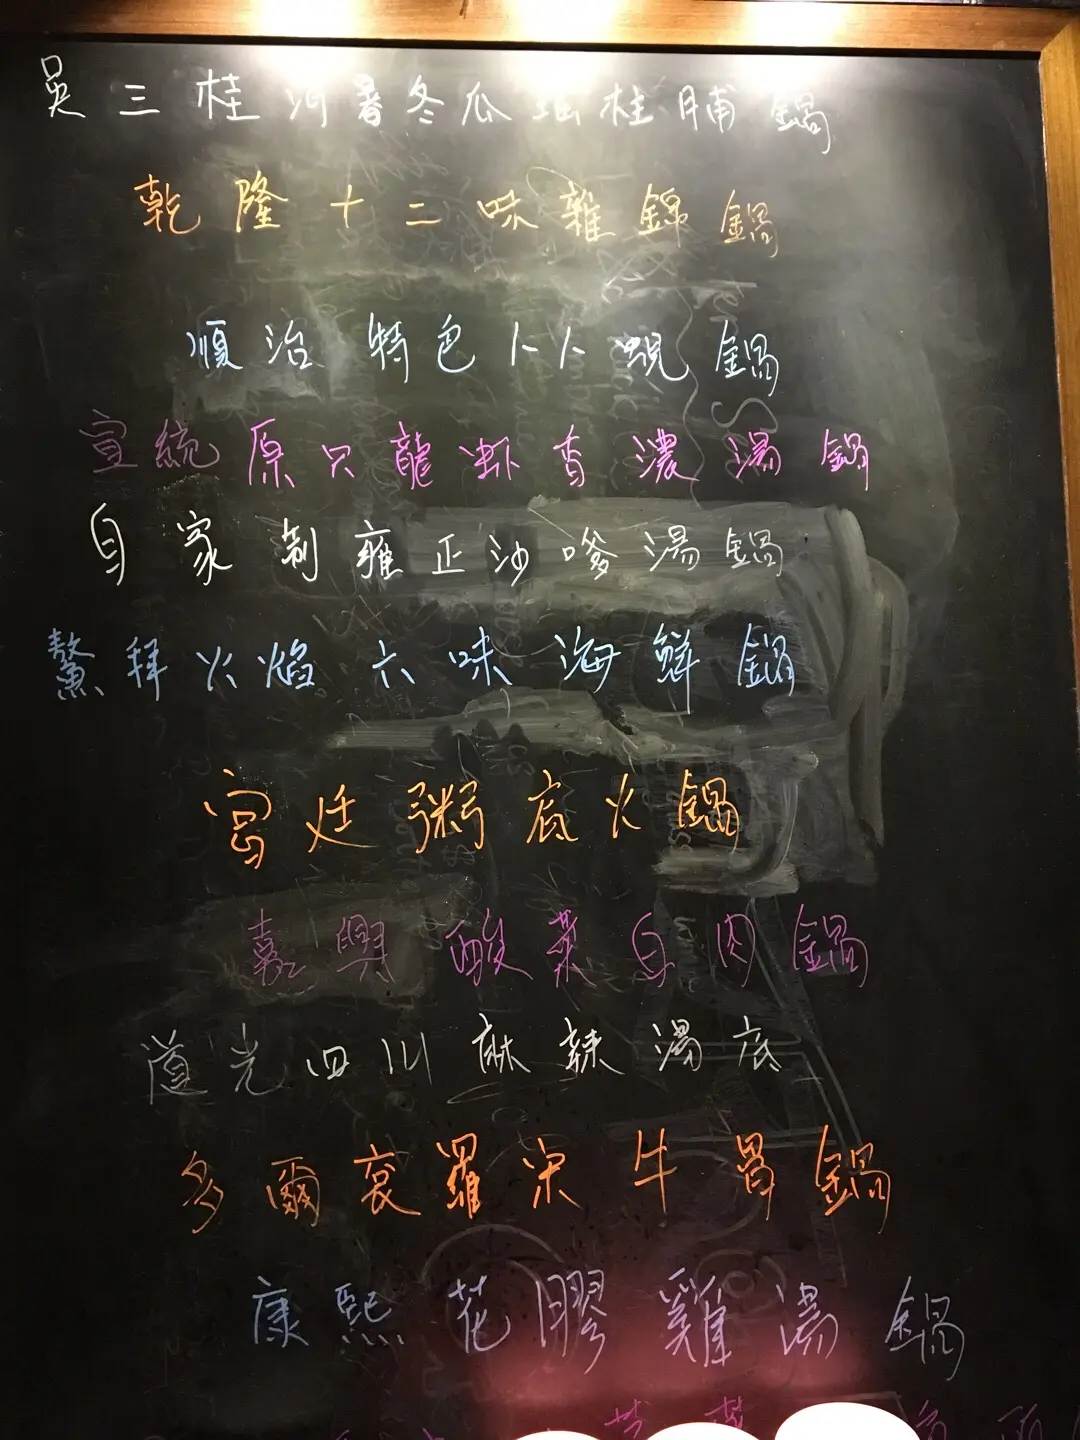 吳三桂消暑冬瓜瑤柱脯鍋
乾隆十二味雜錦鍋
順治特色卜卜蜆鍋
宣統原只龍虾香濃湯鍋
自家制雍正沙嗲湯鍋
鰲拜火焰六味海鮮鍋
宮廷粥底火鍋
嘉興酸菜白肉鍋
道光四川麻辣湯底
多爾袞羅宋牛骨鍋
康熙花膠雞湯鍋